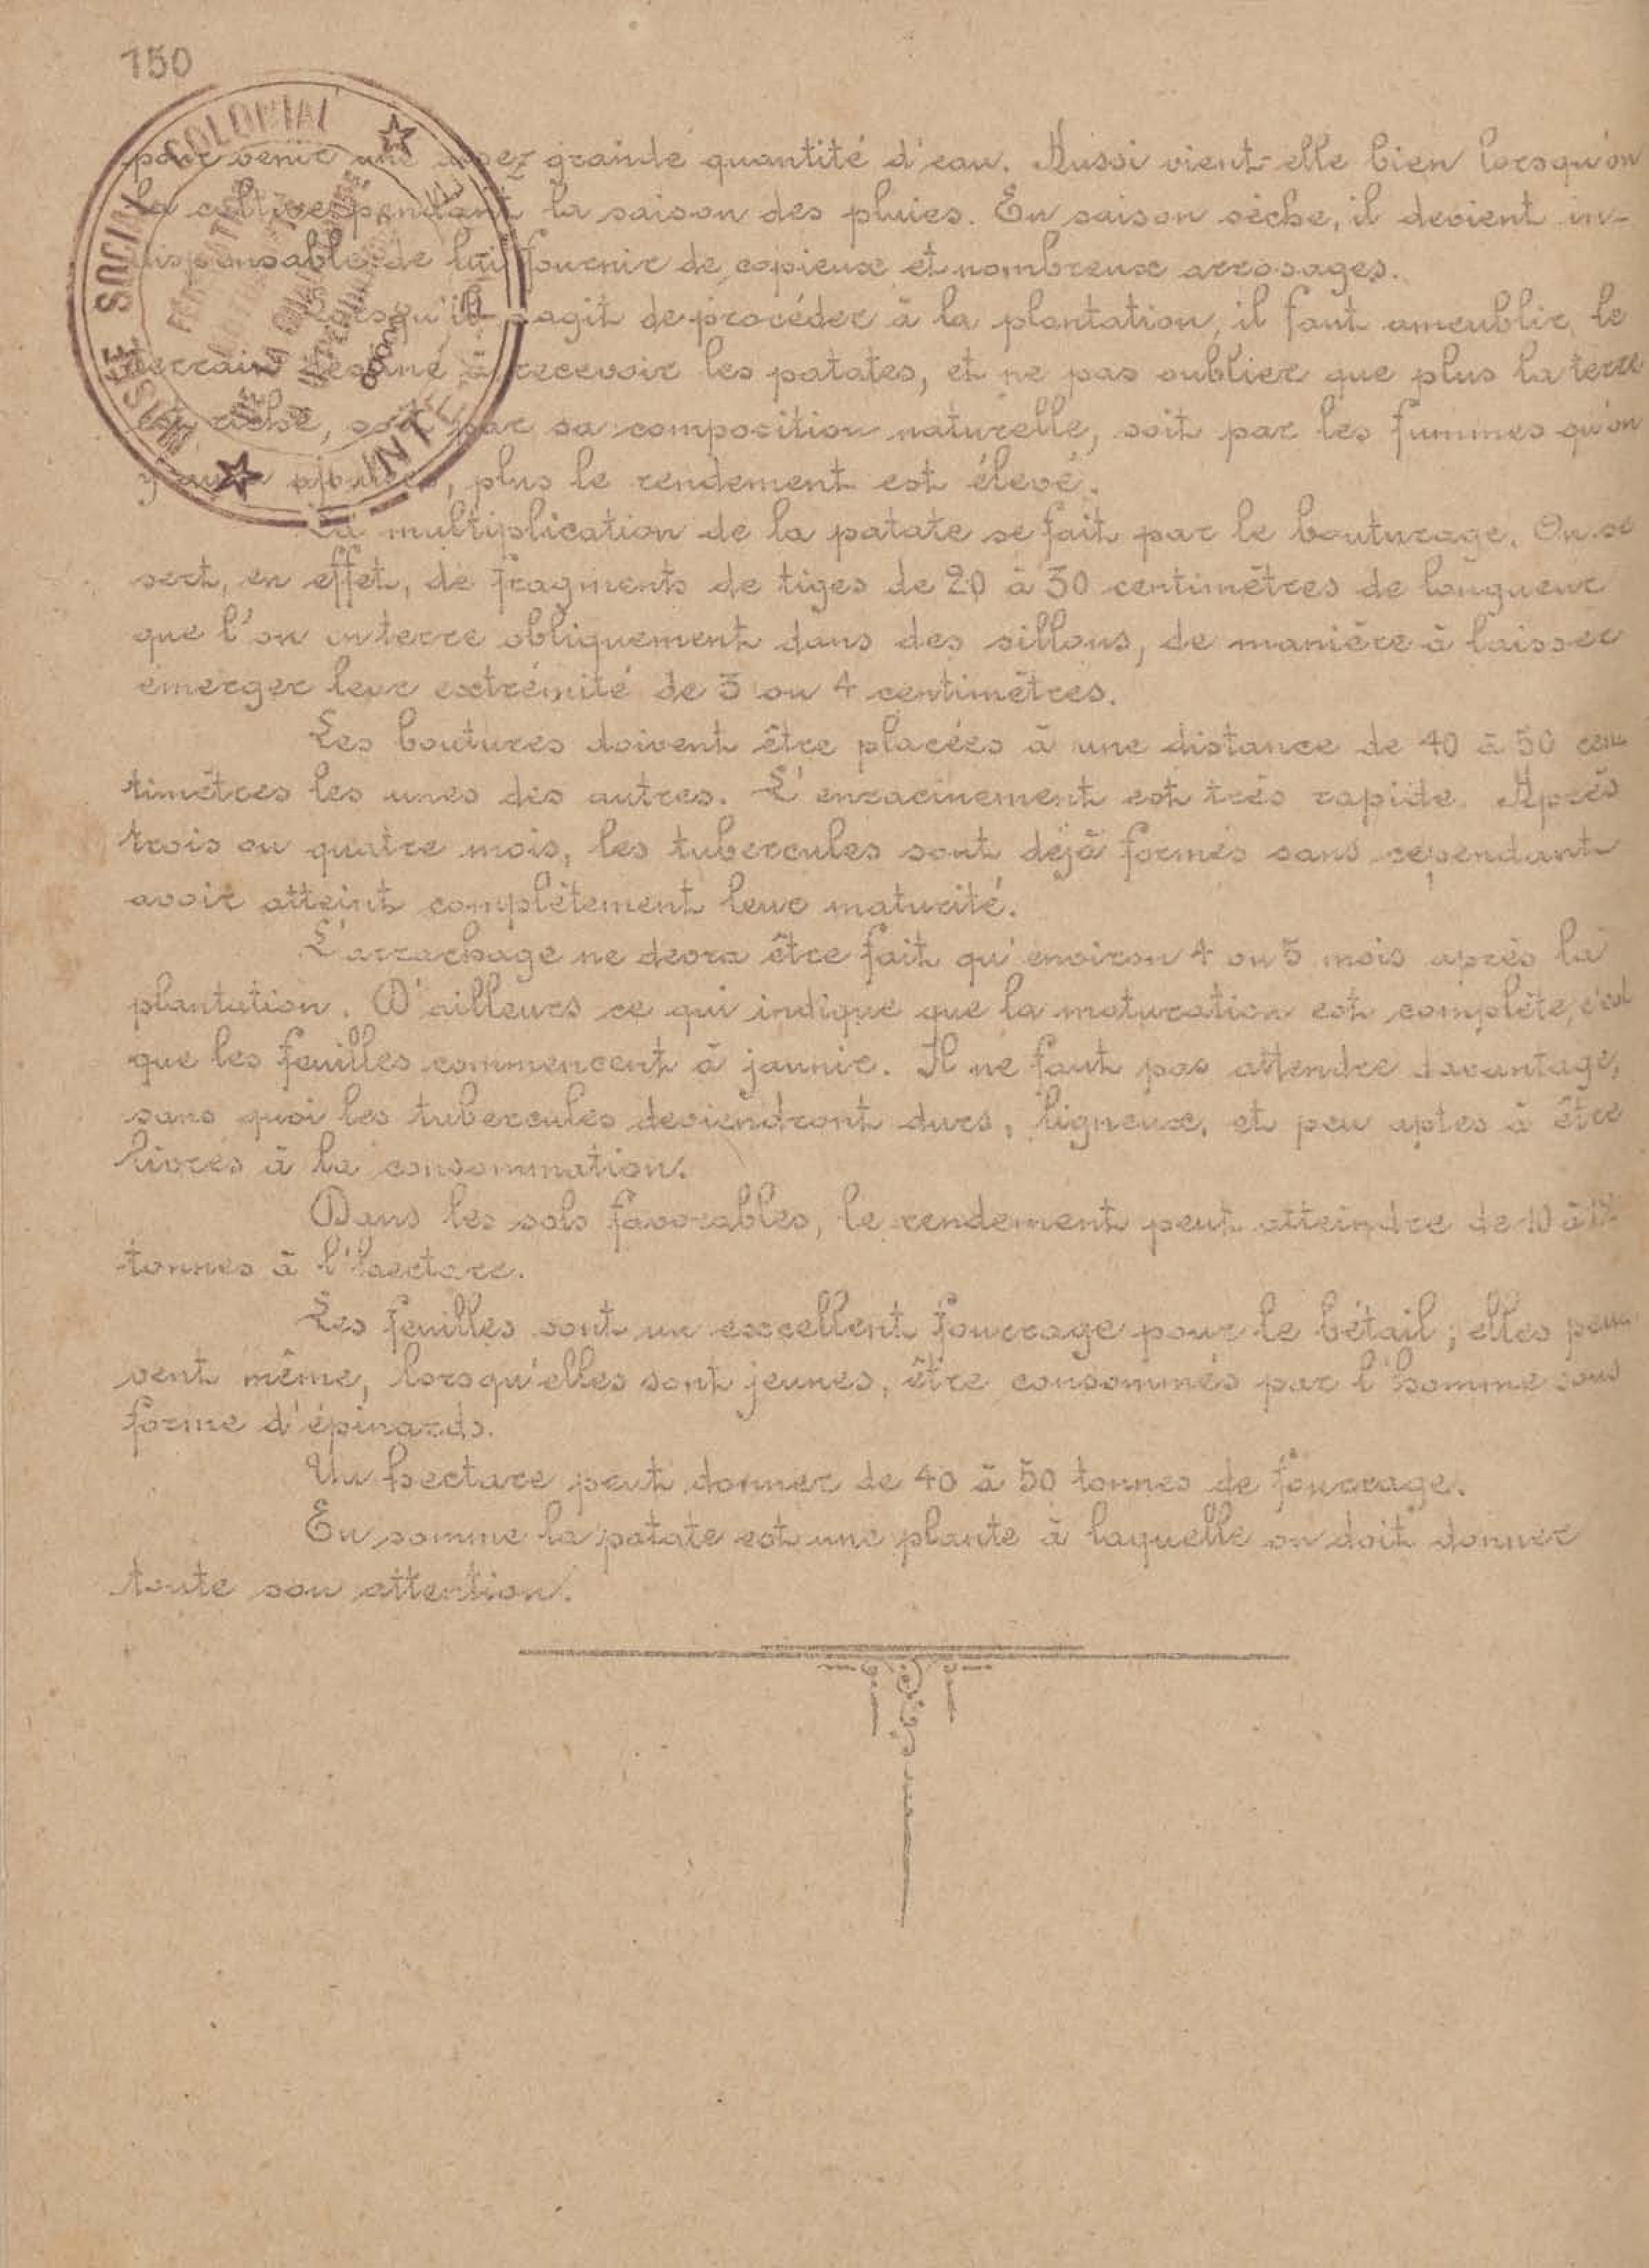 150
MUSÉE SOCIAL COLONIAL
pour venir une assez grande quantité d'eau. Aussi vient-elle bien lorsqu'on
la cultive pendant la saison des pluies. En saison sèche, il devient in-
dispensable de lui fournir de copieux et nombreux arrosages.
Lorsqu'il s'agit de procéder à la plantation, il faut ameublir le
terrain destiné à recevoir les patates, et ne pas oublier que plus la terre
est riche, soit par sa composition naturelle, soit par les fumures qu'on
y aura ajoutées, plus le rendement est élevé.
La multiplication de la patate se fait par le bouturage. On se
sert, en effet, de fragments de tiges de 20 à 30 centimètres de longueur
que l'on enterre obliquement dans des sillons, de manière à laisser
émerger leur extrémité de 3 ou 4 centimètres.
Les boutures doivent être placées à une distance de 40 à 50 cen
timètres les unes des autres. L'enracinement est très rapide. Après
trois ou quatre mois, les tubercules sont déjà formés sans cependant
avoir atteint complètement leur maturité.
L'arrachage ne devra être fait qu'environ 4 ou 5 mois après la
plantation. D'ailleurs ce qui indique que la maturation est complète, c'est
que les feuilles commencent à jaunir. Il ne faut pas attendre davantage,
sans quoi les tubercules deviendront durs, ligneux, et peu aptes à être
livrés à la consommation.
Dans les sols favorables, le rendement peut atteindre de 10 à
tonnes à l'hectare.
Les feuilles sont un excellent fourrage pour le bétail; elles peu
vent même, lorsqu'elles sont jeunes, être consommés par l'homme sous
forme d'épinards.
Un hectare peut donner de 40 à 50 tonnes de fourrage.
En somme la patate est une plante à laquelle on doit donner
toute son attention.